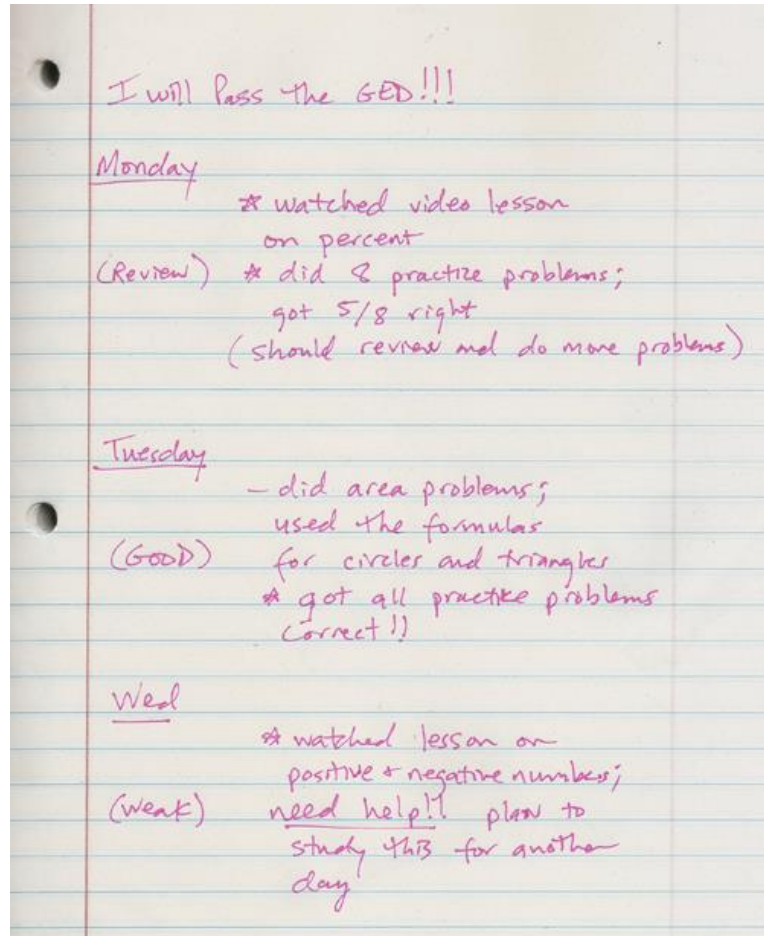 I will Pass the GED!!!
Monday
☆ watched video lesson
on percent
(Review) ☆ did 8 practize problems;
got 5/8 right
(should review and do more problems)
Tuesday
- did area problems;
used the formulas
(GOOD) for circles and triangles
☆ got all practice problems
correct!!
Wed
☆ watched lesson on
positive + negative numbers;
(Weak) need help!! plan to
study this for another
day